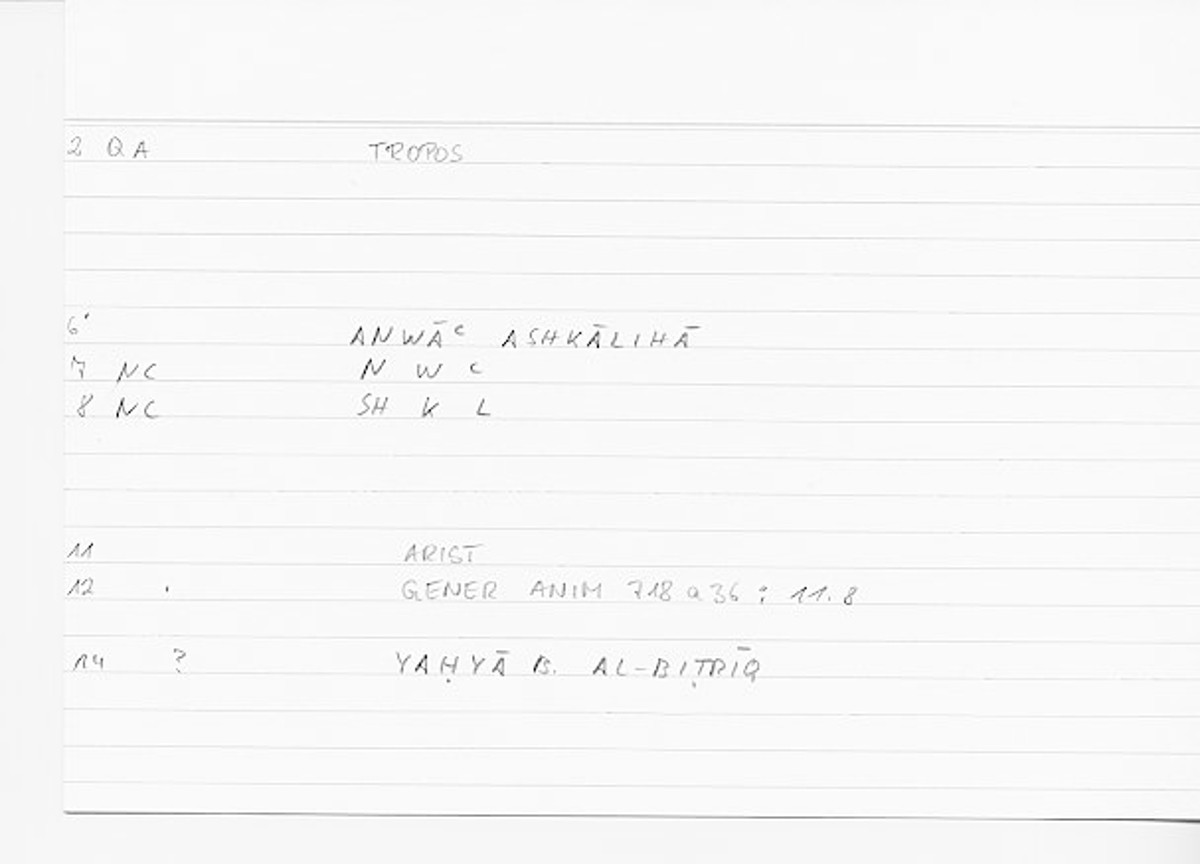 2 QA TROPOS
6' ANWĀᶜ ASHKĀLIHĀ
7 NC N W ᶜ
8 NC SH K L
11 ARIST
12 . GENER ANIM 718 a 36 : 11.8
14 ? YAḤYĀ B. AL-BIṬRĪQ